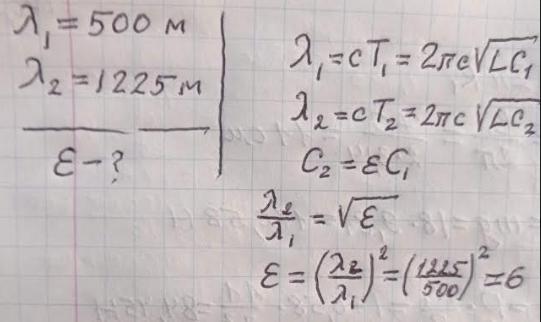 λ₁ = 500 м
λ₂ = 1225 м
ε - ?
λ₁ = cT₁ = 2πc√LC₁
λ₂ = cT₂ = 2πc√LC₂
C₂ = εC₁
λ₂/λ₁ = √ε
ε = (λ₂/λ₁)² = (1225/500)² = 6